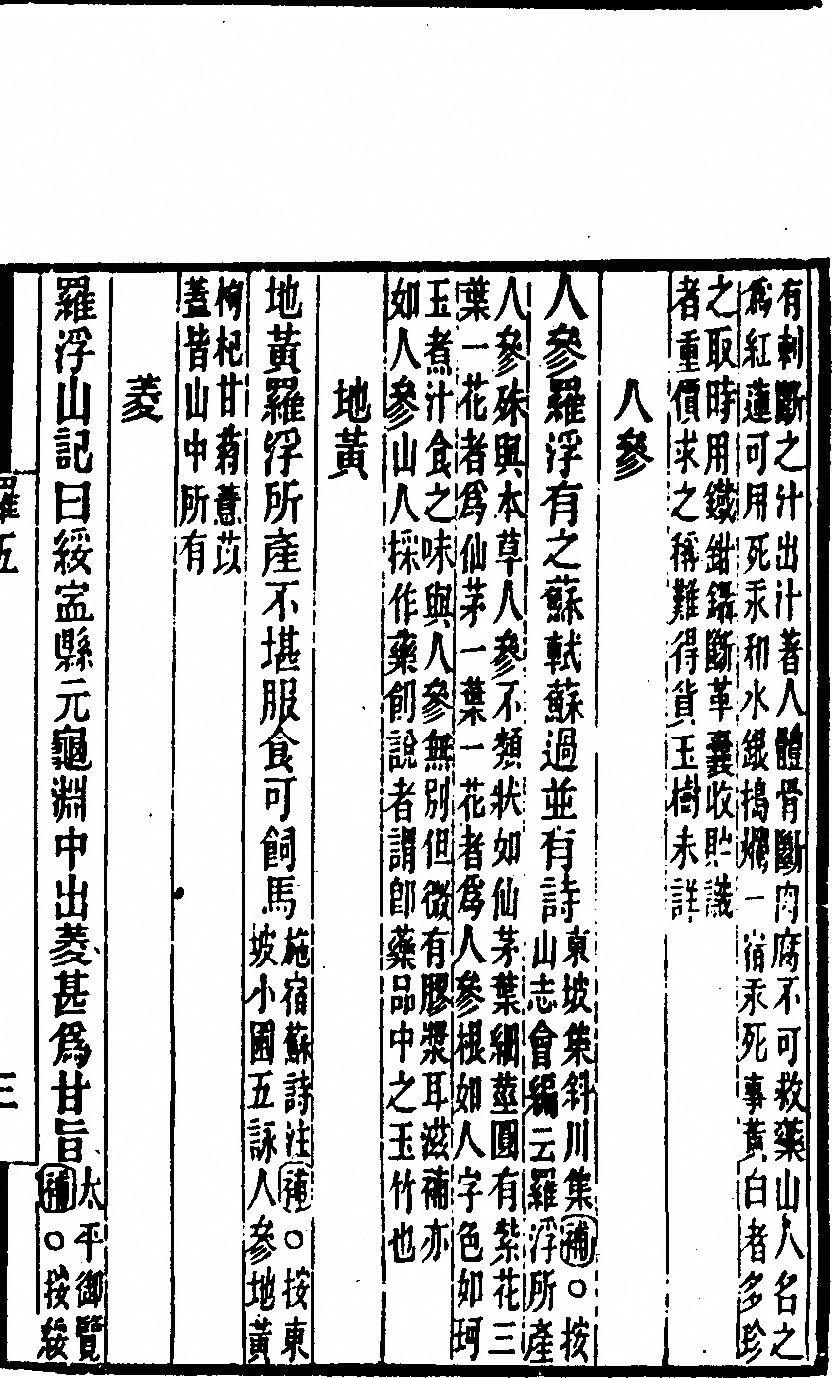 有刺斷之汁出汁著人體骨斷肉腐不可救藥山人名之
爲紅蓮可用死汞和水銀搗爛一宿汞死事黃白者多珍
之取時用鐵鉗鑷斷革囊收貯識
者重價求之稱難得貨玉樹未詳
人參
人參羅浮有之蘇軾蘇過並有詩
東坡集斜川集補○按
山志會編云羅浮所產
人參殊與本草人參不類狀如仙茅葉細莖圓有紫花三
葉一花者爲仙茅一葉一花者爲人參根如人字色如珂
玉煮汁食之味與人參無別但微有膠漿耳滋補亦
如人參山人採作藥餌說者謂卽藥品中之玉竹也
地黃
地黃羅浮所產不堪服食可飼馬
施宿蘇詩注補○按東
坡小圃五詠人參地黃
枸杞甘菊薏苡
蓋皆山中所有
菱
羅浮山記曰綏寍縣元龜淵中出菱甚爲甘旨
太平御覽
補○按綏
羅五
三